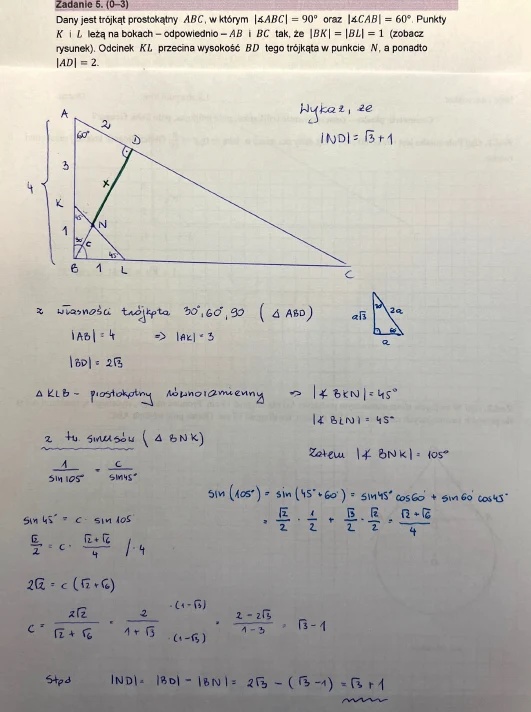 Zadanie 5. (0–3)
Dany jest trójkąt prostokątny ABC, w którym |∡ABC| = 90° oraz |∡CAB| = 60°. Punkty
K i L leżą na bokach – odpowiednio – AB i BC tak, że |BK| = |BL| = 1 (zobacz
rysunek). Odcinek KL przecina wysokość BD tego trójkąta w punkcie N, a ponadto
|AD| = 2.
Wykaż, że
|ND| = √3 + 1
A
2
60°
D
3
x
4
K
45°
N
1
30°
c
45°
B 1 L
C
z własności trójkąta 30°, 60°, 90 (△ ABD)
a√3
30°
2a
60°
a
|AB| = 4 => |AK| = 3
|BD| = 2√3
△ KLB - prostokątny równoramienny => |∡ BKN| = 45°
|∡ BLN| = 45°
z tw. sinusów (△ BNK)
Zatem |∡ BNK| = 105°
1/sin105° = c/sin45°
sin(105°) = sin(45°+60°) = sin45° cos60° + sin60° cos45°
= √2/2 · 1/2 + √3/2 · √2/2 = √2+√6/4
sin 45° = c · sin 105
√2/2 = c · √2+√6/4 /· 4
2√2 = c (√2+√6)
c = 2√2/√2+√6 = 2/1+√3 ·(1-√3)/·(1-√3) = 2-2√3/1-3 = √3-1
Stąd |ND| = |BD| - |BN| = 2√3 - (√3-1) = √3+1